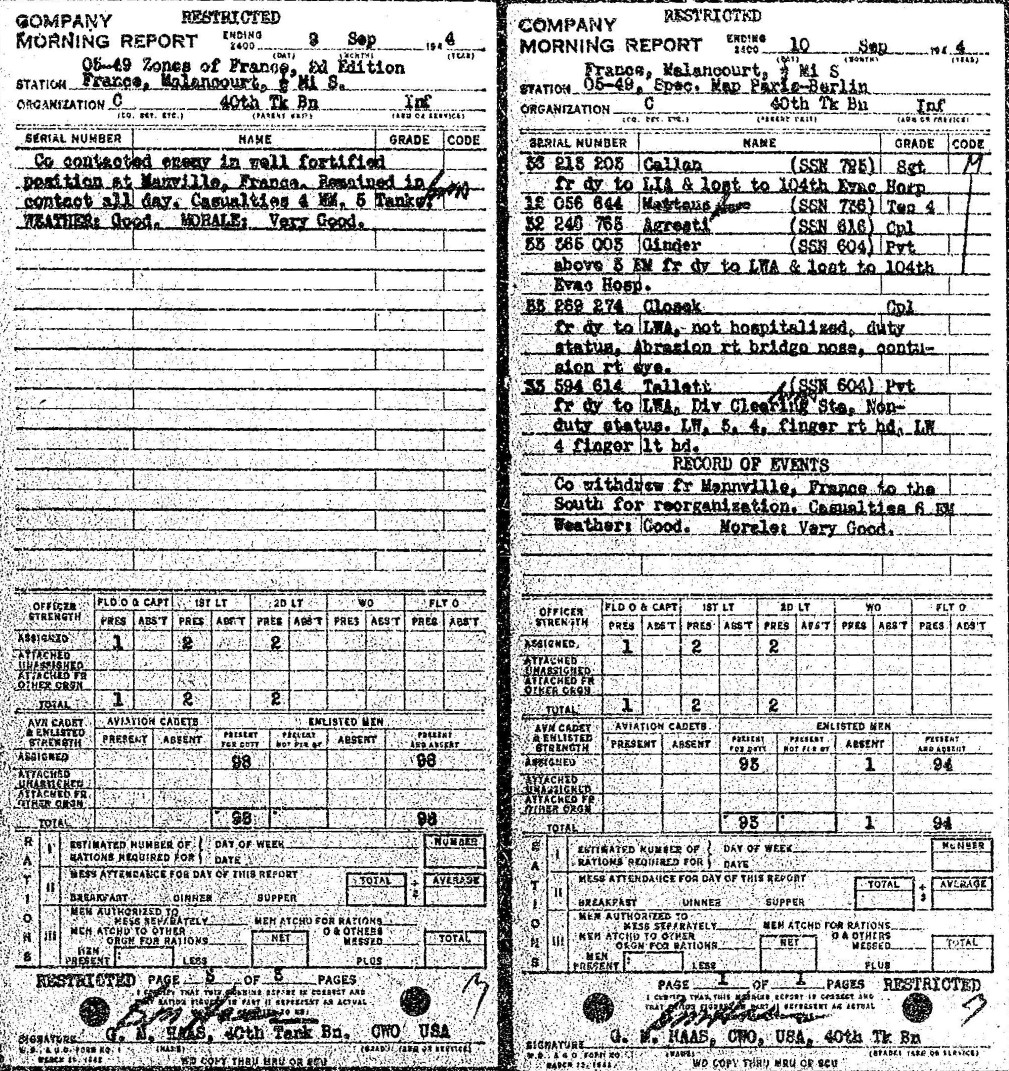 COMPANY RESTRICTED
MORNING REPORT ENDING 2400 9 Sep 1944
(DAY) (MONTH) (YEAR)
05-49 Zones of France, 2d Edition
STATION France, Malancourt, ½ Mi S.
ORGANIZATION C 40th Tk Bn Inf
(CO. DET. ETC.) (PARENT UNIT) (ARM OR SERVICE)
SERIAL NUMBER NAME GRADE CODE
Co contacted enemy in well fortified
position at Manville, France. Remained in
contact all day. Casualties 4 EM, 5 Tanks.
WEATHER: Good. MORALE: Very Good.
OFFICER STRENGTH FLD O & CAPT 1ST LT 2D LT WO FLT O
PRES ABS'T PRES ABS'T PRES ABS'T PRES ABS'T PRES ABS'T
ASSIGNED 1 2 2
ATTACHED UNASSIGNED
ATTACHED FR OTHER ORGN
TOTAL 1 2 2
AVN CADET & ENLISTED STRENGTH AVIATION CADETS ENLISTED MEN
PRESENT ABSENT PRESENT FOR DUTY PRESENT NOT FOR DY ABSENT PRESENT AND ABSENT
ASSIGNED 98 98
ATTACHED UNASSIGNED
ATTACHED FR OTHER ORGN
TOTAL 98 98
RATIONS
I ESTIMATED NUMBER OF RATIONS REQUIRED FOR DAY OF WEEK DATE NUMBER
II MESS ATTENDANCE FOR DAY OF THIS REPORT TOTAL ÷ 3 AVERAGE
BREAKFAST DINNER SUPPER
III MEN AUTHORIZED TO MESS SEPARATELY MEN ATCHD FOR RATIONS
MEN ATCHD TO OTHER ORGN FOR RATIONS NET O & OTHERS MESSED TOTAL
MEN PRESENT LESS PLUS
RESTRICTED PAGE 3 OF 3 PAGES
I CERTIFY THAT THIS MORNING REPORT IS CORRECT AND
G. M. HAAS, 40th Tank Bn. CWO USA
SIGNATURE
W.D., A.G.O. FORM NO. 1 (NAME) (GRADE) (ARM OR SERVICE)
MARCH
WD COPY THRU MRU OR SCU
COMPANY RESTRICTED
MORNING REPORT ENDING 2400 10 Sep 1944
(DAY) (MONTH) (YEAR)
France, Malancourt, ½ Mi S
STATION 05-49, Spec. Map Paris-Berlin
ORGANIZATION C 40th Tk Bn Inf
(CO. DET. ETC.) (PARENT UNIT) (ARM OR SERVICE)
SERIAL NUMBER NAME GRADE CODE
33 213 203 Callan (SSN 795) Sgt
fr dy to LIA & lost to 104th Evac Hosp
12 056 644 (SSN 736) Tec 4
32 240 765 Agresti (SSN 616) Cpl
33 365 003 Ginder (SSN 604) Pvt
above 3 EM fr dy to LWA & lost to 104th
Evac Hosp.
33 269 274 Closek Cpl
fr dy to LWA, not hospitalized, duty
status, Abrasion rt bridge nose, contu-
sion rt eye.
33 594 614 Tallett (SSN 604) Pvt
fr dy to LWA, Div Clearing Sta, Non-
duty status. LW, 3, 4, finger rt hd, LW
4 finger lt hd.
RECORD OF EVENTS
Co withdrew fr Mannville, France to the
South for reorganization. Casualties 6 EM
Weather: Good. Morale: Very Good.
OFFICER STRENGTH FLD O & CAPT 1ST LT 2D LT WO FLT O
PRES ABS'T PRES ABS'T PRES ABS'T PRES ABS'T PRES ABS'T
ASSIGNED 1 2 2
ATTACHED UNASSIGNED
ATTACHED FR OTHER ORGN
TOTAL 1 2 2
AVN CADET & ENLISTED STRENGTH AVIATION CADETS ENLISTED MEN
PRESENT ABSENT PRESENT FOR DUTY PRESENT NOT FOR DY ABSENT PRESENT AND ABSENT
ASSIGNED 93 1 94
ATTACHED UNASSIGNED
ATTACHED FR OTHER ORGN
TOTAL 93 1 94
RATIONS
I ESTIMATED NUMBER OF RATIONS REQUIRED FOR DAY OF WEEK DATE NUMBER
II MESS ATTENDANCE FOR DAY OF THIS REPORT TOTAL ÷ 3 AVERAGE
BREAKFAST DINNER SUPPER
III MEN AUTHORIZED TO MESS SEPARATELY MEN ATCHD FOR RATIONS
MEN ATCHD TO OTHER ORGN FOR RATIONS NET O & OTHERS MESSED TOTAL
MEN PRESENT LESS PLUS
PAGE 1 OF 1 PAGES RESTRICTED
I CERTIFY THAT THIS MORNING REPORT IS CORRECT AND
G. M. HAAS, CWO, USA, 40th Tk Bn
SIGNATURE
W.D., A.G.O. FORM NO. 1 (NAME) (GRADE) (ARM OR SERVICE)
MARCH
WD COPY THRU MRU OR SCU